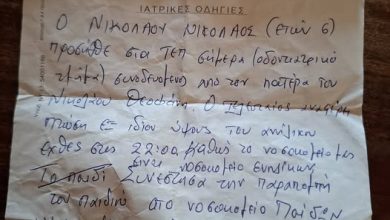 ΙΑΤΡΙΚΕΣ ΟΔΗΓΙΕΣ
Ο ΝΙΚΟΛΑΟΥ ΝΙΚΟΛΑΟΣ (ετών 6)
προσήλθε στα ΤΕΠ σήμερα (οδοντιατρικό
τμήμα) συνοδευόμενος από τον πατέρα του
Νικολάου. Ο τελευταίος αναφέρει
πτώση εξ ιδίου ύψους του ανήλικου
εχθές στις 22:00 καθώς το νοσοκομείο μας
είναι νοσοκομείο ενηλίκων
Το παιδί Συνέστησα την παραπομπή
του παιδιού στο νοσοκομείο Παίδων